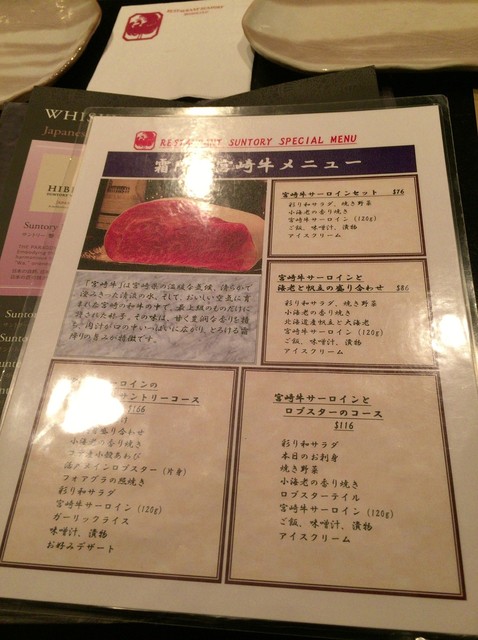 RESTAURANT SUNTORY
WHIS
Japanes
HIB
Suntory
RESTAURANT SUNTORY SPECIAL MENU
霜 宮崎牛メニュー
宮崎牛サーロインセット $76
彩り和サラダ、焼き野菜
小海老の香り焼き
宮崎牛サーロイン (120g)
ご飯、味噌汁、漬物
アイスクリーム
「宮崎牛」は宮崎県の温暖な気候、清らかで
澄みきった清流の水、そして、おいしい空気に育
まれた宮崎の和牛の中で、最上級のものだけに
許された称号。その味は、甘く豊潤な香りを
肉汁が口の中いっぱいに広がり、とろける
旨みが特徴です。
宮崎牛サーロインと
海老と帆立の盛り合わせ $86
彩り和サラダ、焼き野菜
小海老の香り焼き
北海道産帆立と大海老
宮崎牛サーロイン (120g)
ご飯、味噌汁、漬物
アイスクリーム
サーロインの
サントリーコース
$166
盛り合わせ
小海老の香り焼き
小殻あわび
メインロブスター (片身)
フォアグラの照焼き
彩り和サラダ
宮崎牛サーロイン (120g)
ガーリックライス
味噌汁、漬物
お好みデザート
宮崎牛サーロインと
ロブスターのコース
$116
彩り和サラダ
本日のお刺身
焼き野菜
小海老の香り焼き
ロブスターテイル
宮崎牛サーロイン (120g)
ご飯、味噌汁、漬物
アイスクリーム